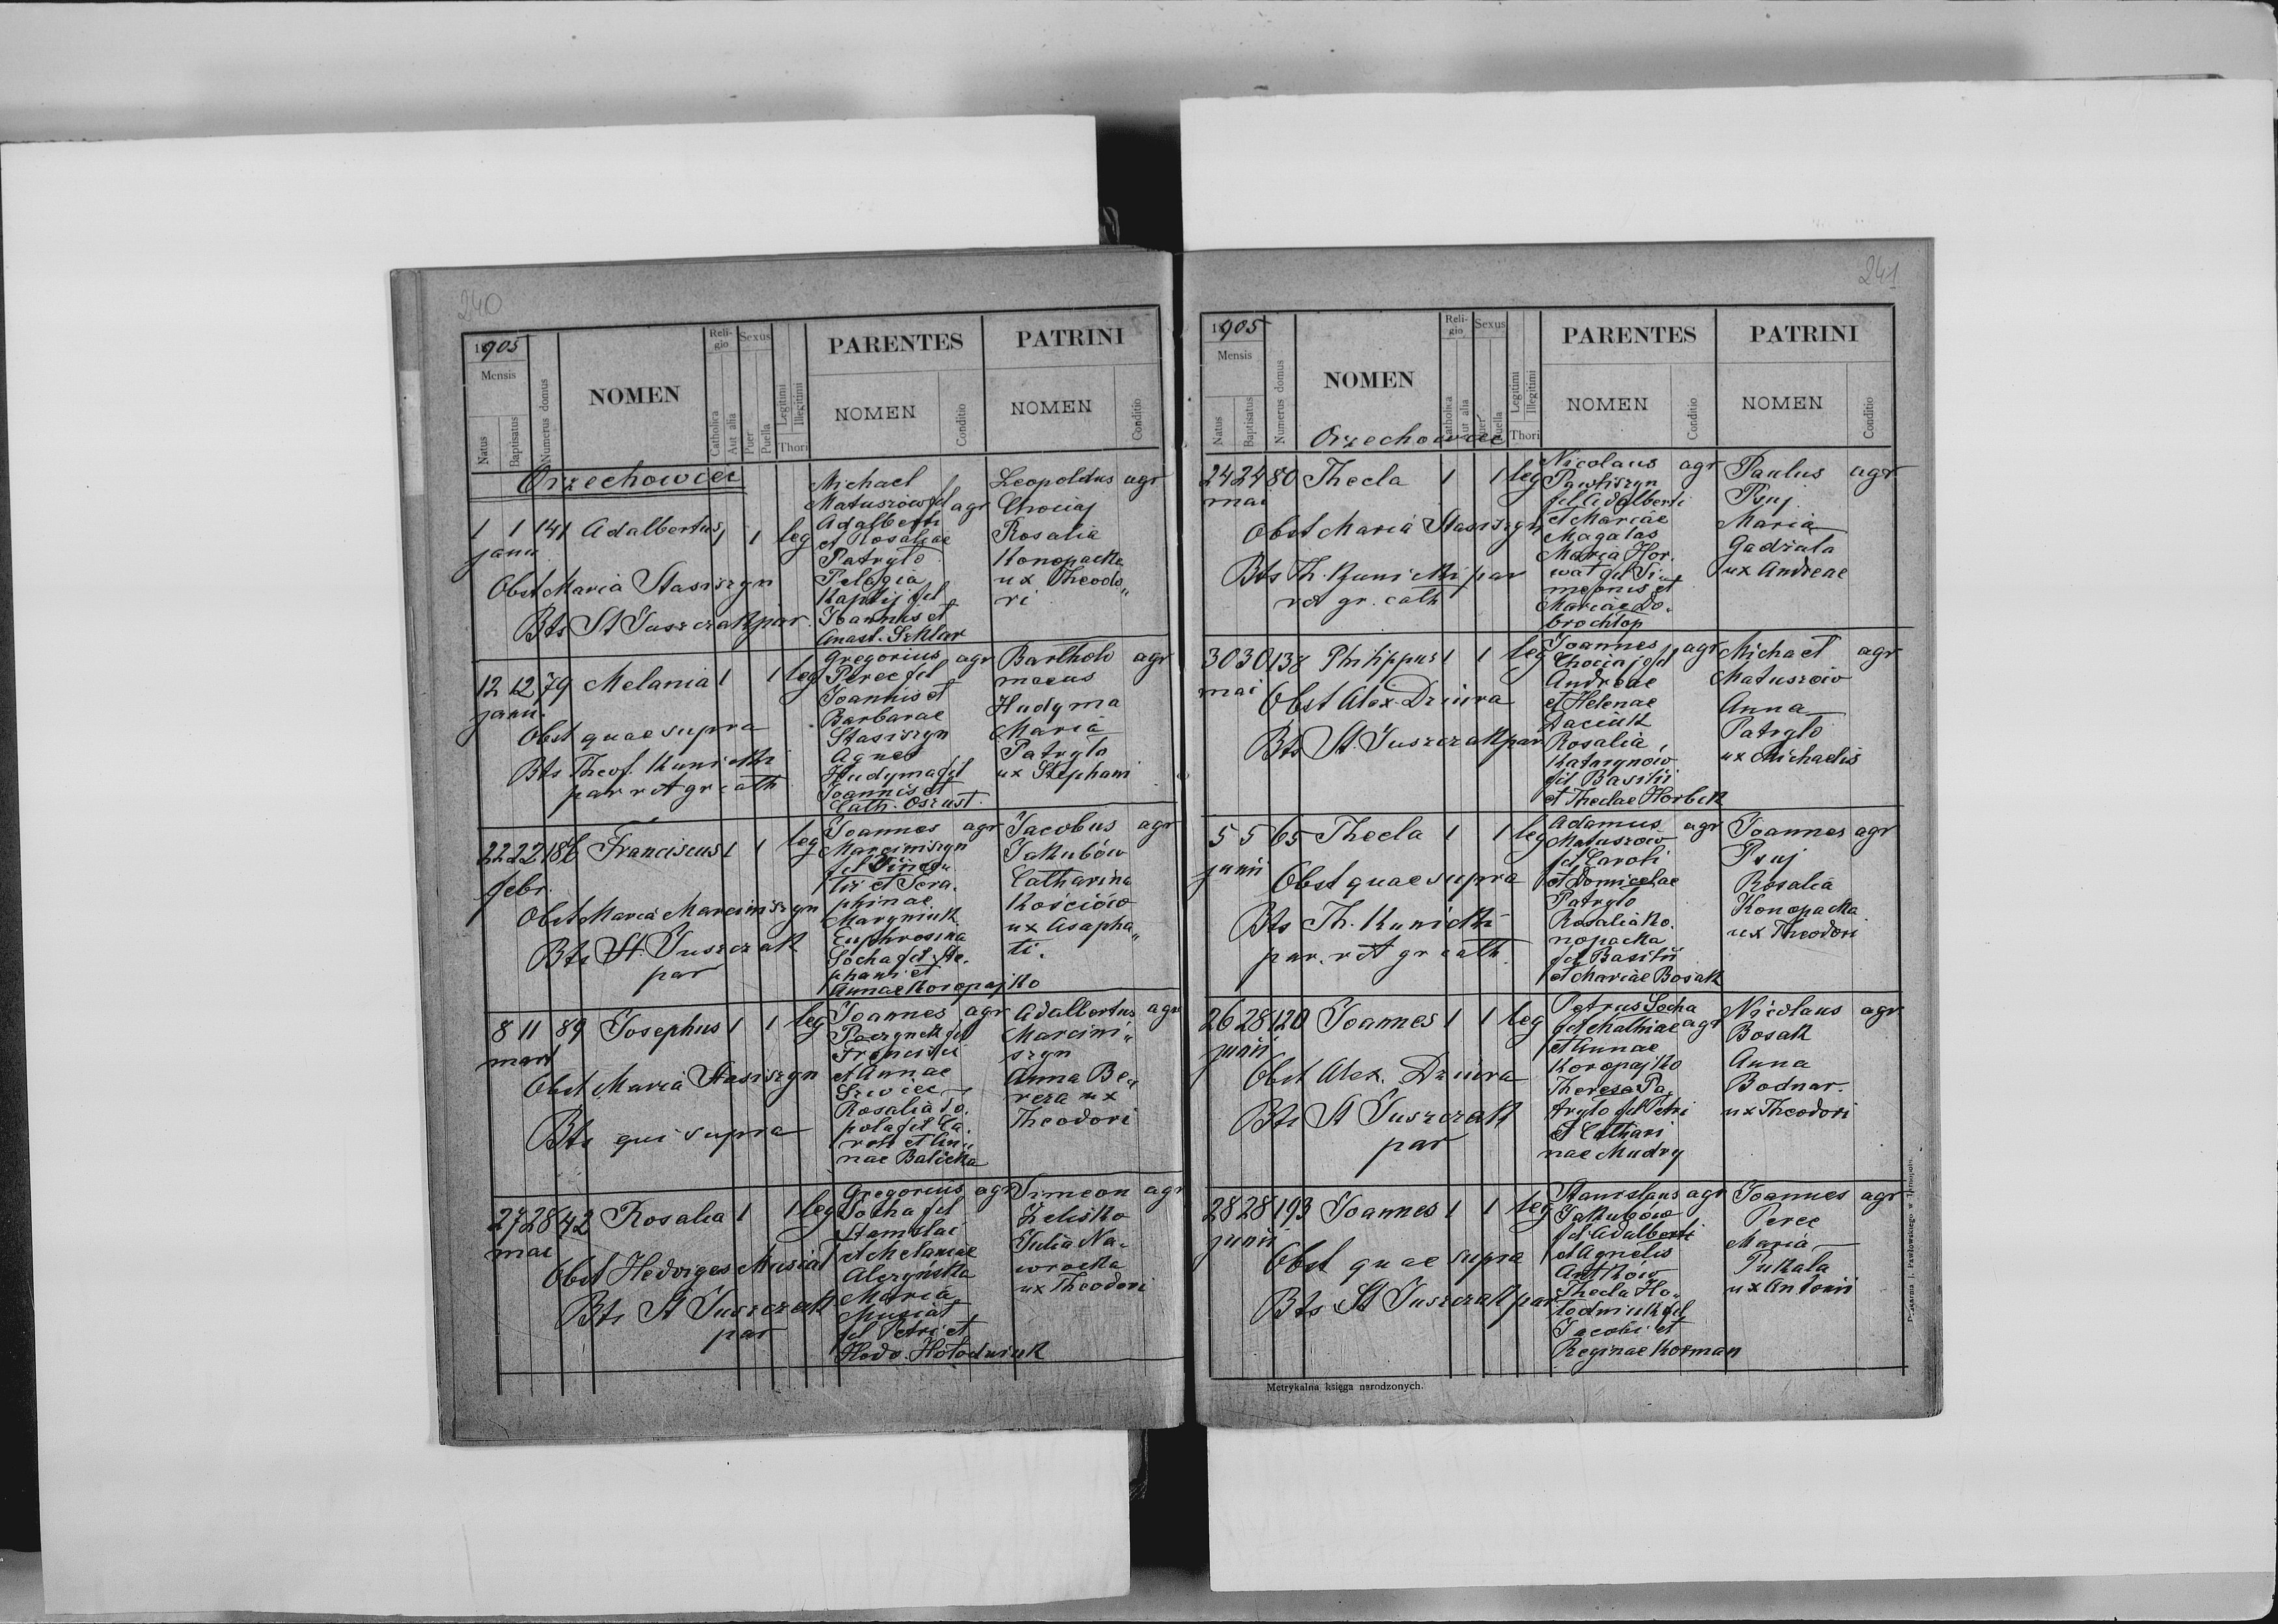 240
1905
Mensis
Natus
Baptisatus
Numerus domus
NOMEN
Religio
Catholica
Aut alia
Sexus
Puer
Puella
Legitimi
Illegitimi
Thori
PARENTES
NOMEN
Conditio
PATRINI
NOMEN
Conditio
Orzechowiec
1 1 141 Adalbertus 1 1 leg
janu
Obst Maria Stasiszyn
Bts St Juszczak par
Michael
Matuszów fil agr
Adalberti
et Rosaliae
Patryło
Pelagia
Kaplij fil
Joannis et
Anast. Szklar
Leopoldus agr
Chociaj
Rosalia
Konopacka
ux Theodo„
ri
12 12 79 Melania 1 1 leg
janu.
Obst quae supra
Bts Theof. Kunicki
par rit gr cath
Gregorius agr
Perec fil
Joannis et
Barbarae
Stasiszyn
Agnes
Hudyma fil
Joannis et
Cath. Oszust
Bartholo agr
maeus
Hudyma
Maria
Patryło
ux Stephani
22 22 186 Franciscus 1 1 leg
febr.
Obst Maria Marciniszyn
Bts St. Juszczak
par
Joannes agr
Marciniszyn
et Sera.
phinae
Maryniuk
Euphrosina
Socha fil Ste.
phani et
Annae Koropajko
Jacobus agr
Jakubów
Catharina
Kościów
ux Asapha„
ti.
8 11 89 Josephus 1 1 leg
mart
Obst Maria Stasiszyn
Bts qui supra
Joannes agr
Paczynek fil
Francisci
et Annae
Szwiec
Rosalia To.
pola fil Ca.
roli et An„
nae Balicka
Adalbertus agr
Marcini„
szyn
Anna Be„
reza ux
Theodori
27 28 42 Rosalia 1 1 leg
mai
Obst Hedviges Musiał
Bts St Juszczak
par
Gregorius agr
Socha fil
Stanislai
et Melaniae
Alczyńska
Maria
Musiał
fil Petri et
Hedv. Hołodniuk
Simeon agr
Zelisko
Julia Na„
wrocka
ux Theodori
241
1905
Mensis
Natus
Baptisatus
Numerus domus
NOMEN
Religio
Catholica
Aut alia
Sexus
Puer
Puella
Legitimi
Illegitimi
Thori
PARENTES
NOMEN
Conditio
PATRINI
NOMEN
Conditio
Orzechowiec
24 24 80 Thecla 1 1 leg
mai
Obst Maria Stasiszyn
Bts Th. Kunicki par
rit gr. cath
Nicolaus agr
Pawliszyn
fil Adalberti
et Mariae
Magalas
Maria Hor.
wat fil Si„
meonis et
Mariae Do.
brochłop
Paulus agr
Psuj
Maria
Gadzała
ux Andreae
30 30 138 Philippus 1 1 leg
mai
Obst Alex. Dziura
Bts St. Juszczak par
Joannes agr
Chociaj fil
Andreae
et Helenae
Daciuk
Rosalia
Katarynow
fil Basilii
et Theclae Horbik
Michael agr
Matuszów
Anna
Patryło
ux Michaelis
5 5 65 Thecla 1 1 leg
junii
Obst quae supra
Bts Th. Kunicki
par. rit gr cath.
Adamus agr
Matuszów
fil Caroli
et Domicelae
Patryło
Rosalia Ko.
nopacka
fil Basilii
et Mariae Bosak
Joannes agr
Psuj
Rosalia
Konopacka
ux Theodori
26 28 120 Joannes 1 1 leg
junii
Obst Alex. Dziura
Bts St Juszczak
par
Petrus Socha
fil Mathiae agr
et Annae
Koropajko
Theresa Pa„
tryło fil Petri
et Cathari
nae Mudry
Nicolaus agr
Bosak
Anna
Bodnar.
ux Theodori
28 28 193 Joannes 1 1 leg
junii
Obst quae supra
Bts St Juszczak par
Stanislaus agr
Jakubów
fil Adalberti
et Agnetis
Antków
Thecla Ho„
łodniuk fil
Jacobi et
Reginae Korman
Joannes agr
Perec
Maria
Pukala
ux Antonii
Metrykalna księga narodzonych.
Drukarnia J. Pawłowskiego w Tarnopolu.